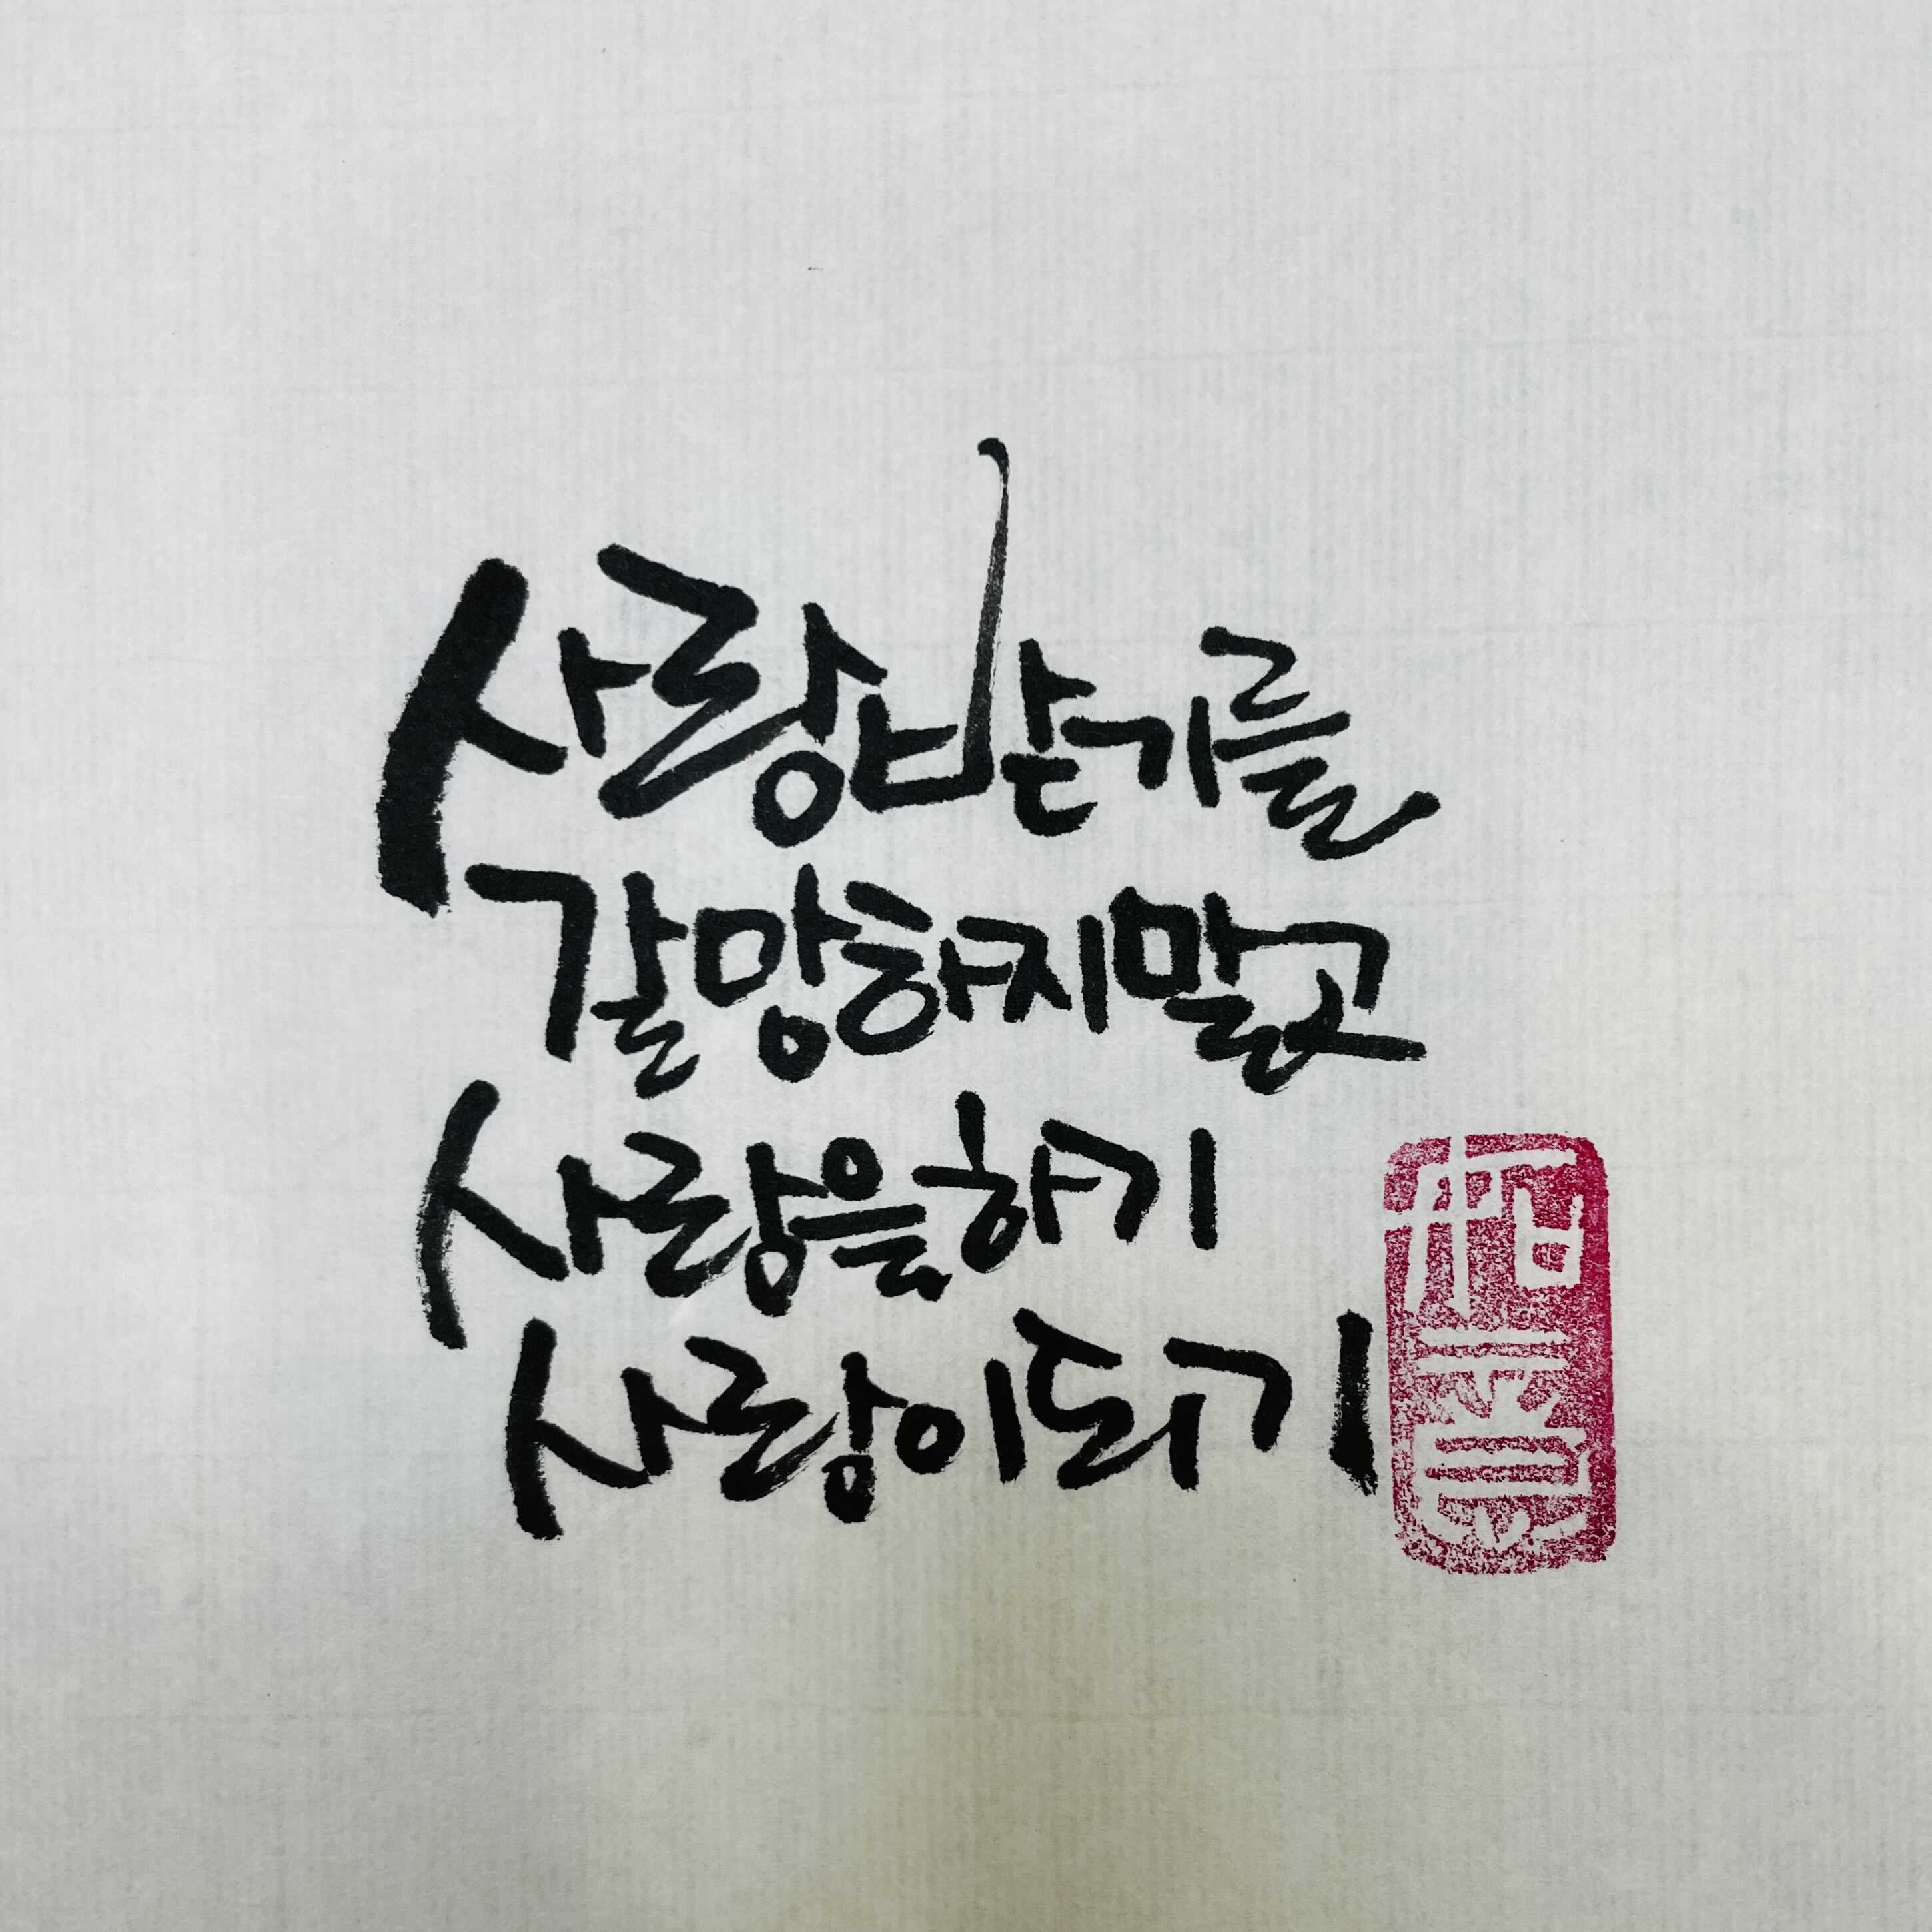 사랑받기를
갈망하지말고
사랑을하기
사랑이되기